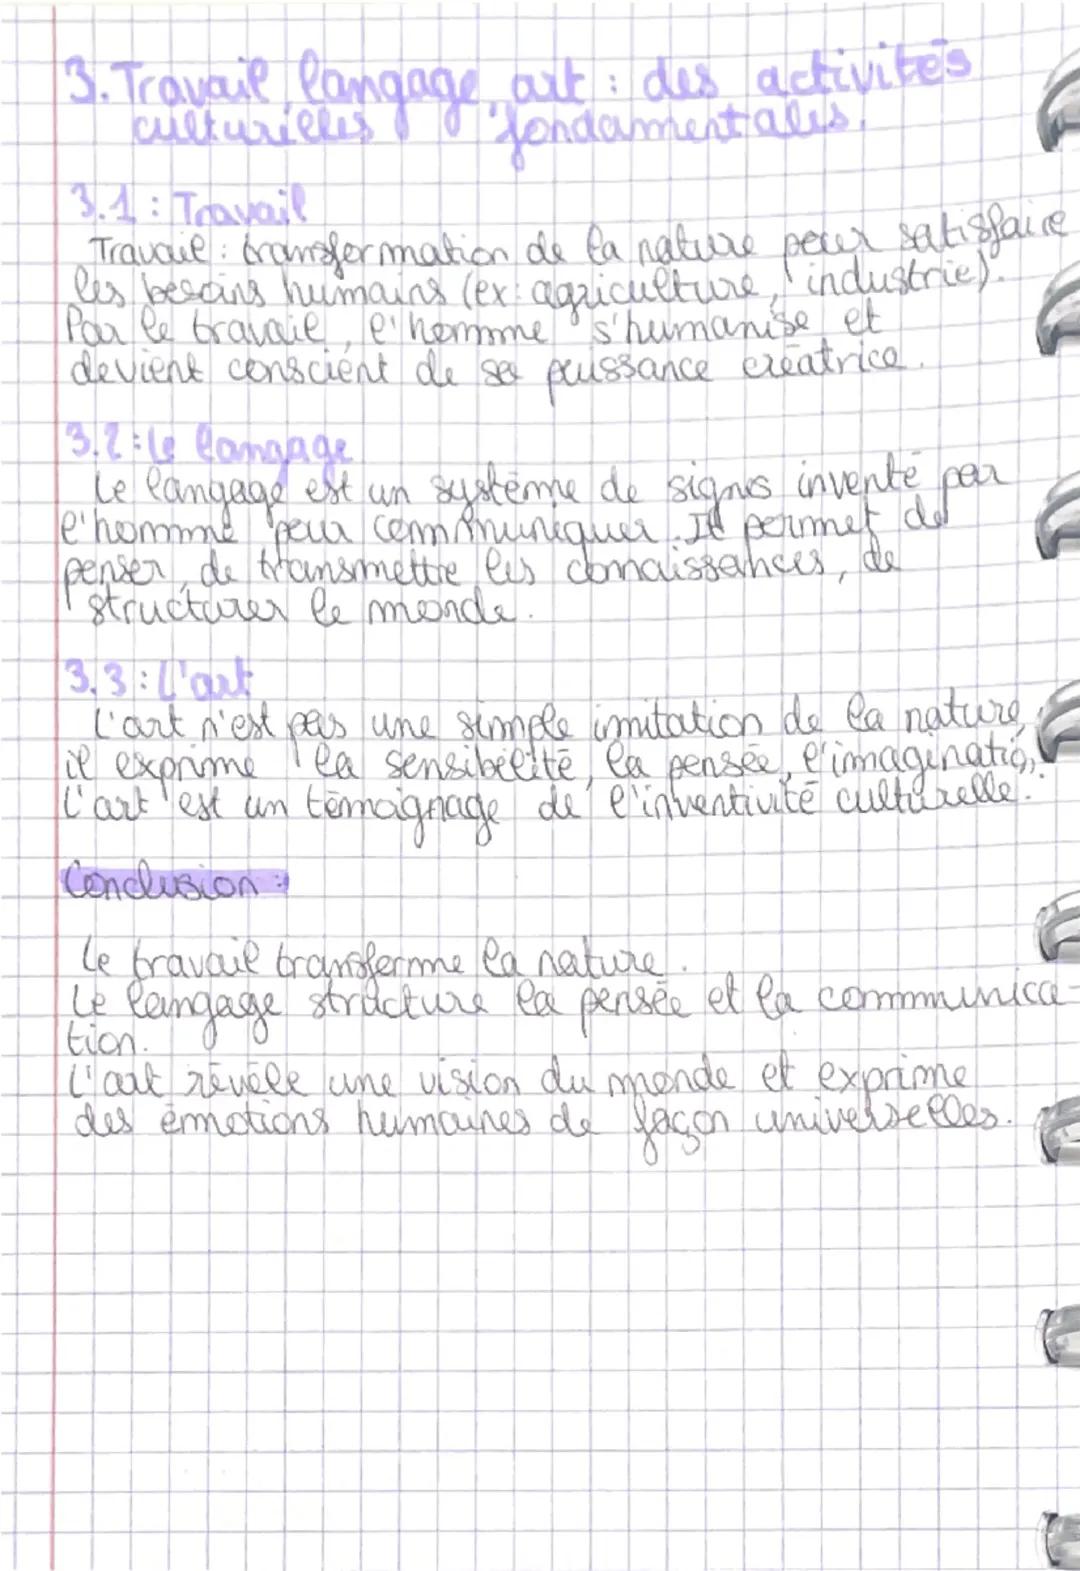 3. Travail, langage, art : des activités
culturelles fondamentales.
3.1 : Travail
Travail : transformation de la nature pour satisfaire
les besoins humains (ex: agriculture, industrie).
Par le travail, l'homme s'humanise et
devient conscient de sa puissance créatrice.
3.2 : Le langage
Le langage est un système de signes inventé par
l'homme pour communiquer. Il permet de
penser, de transmettre les connaissances, de
structurer le monde.
3.3 : L'art
L'art n'est pas une simple imitation de la nature,
il exprime la sensibilité, la pensée, l'imagination.
L'art est un témoignage de l'inventivité culturelle.
Conclusion :
Le travail transforme la nature.
Le langage structure la pensée et la communica-
tion.
L'art révèle une vision du monde et exprime
des émotions humaines de façon universelles.